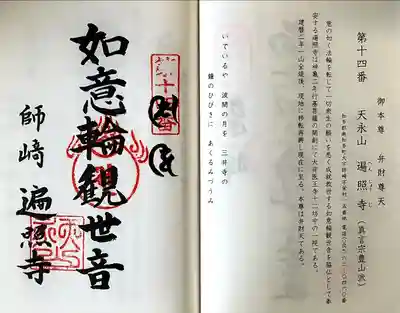 第十四番 天永山 遍照寺(真言宗豊山派)
へんしょうじ
御本尊 弁財尊天
意の如く法輪を転じて一切衆生の願いを悉く成就救世する如意輪観世音を脇仏として奉
安する遍照寺は神亀二年行基菩薩の開創にて大岩医王寺十二坊中の一院である。
建暦二年一山全焼後、現地に移転再興し現在に至る。本尊は弁財天である。
いでいるや 波間の月を 三井寺の
鐘のひびきに あくるみづうみ
十四番
如意輪観世音
師崎 遍照寺